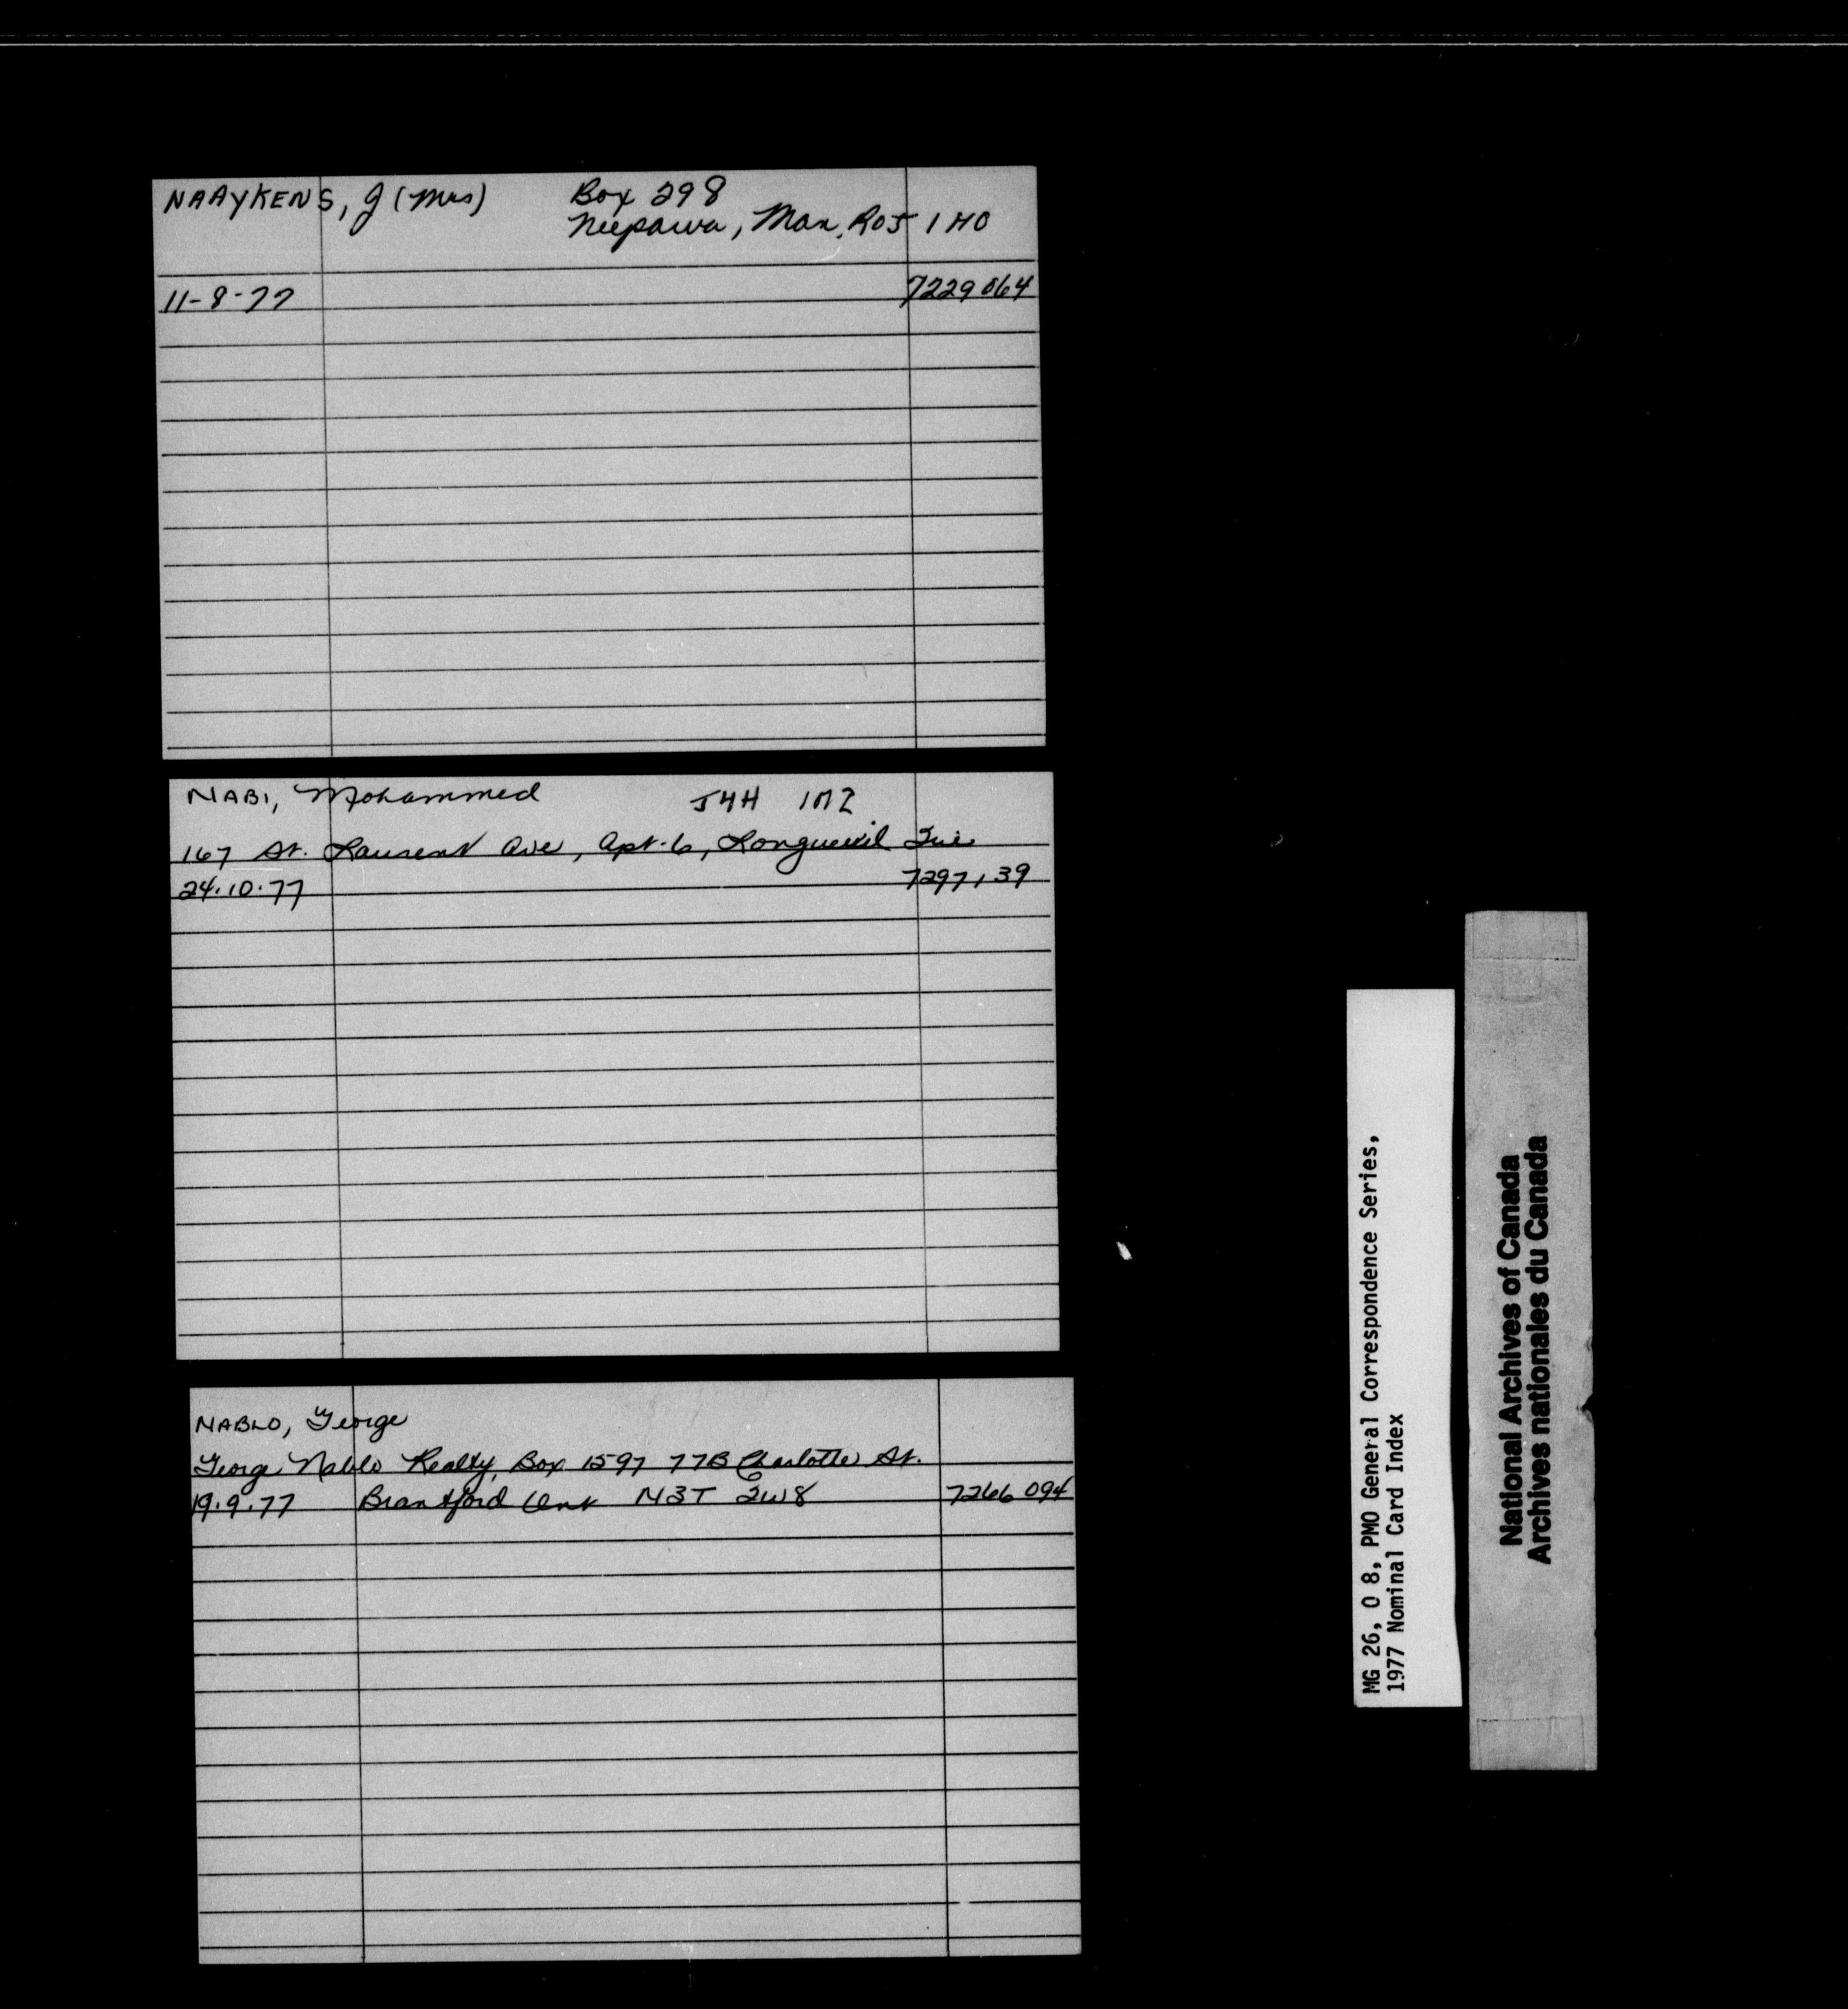 NAAYKENS, J (Mrs) Box 298
Neepawa, Man. R0J 1H0
11-8-77 7229064
NABI, Mohammed J4H 1M2
167 St. Laurent Ave, Apt. 6, Longueuil Que
24.10.77 7297139
NABLO, George
George Nablo Realty, Box 1597 77B Charlotte St.
19.9.77 Brantford Ont N3T 2W8 7266094
MG 26, O 8, PMO General Correspondence Series,
1977 Nominal Card Index
National Archives of Canada
Archives nationales du Canada